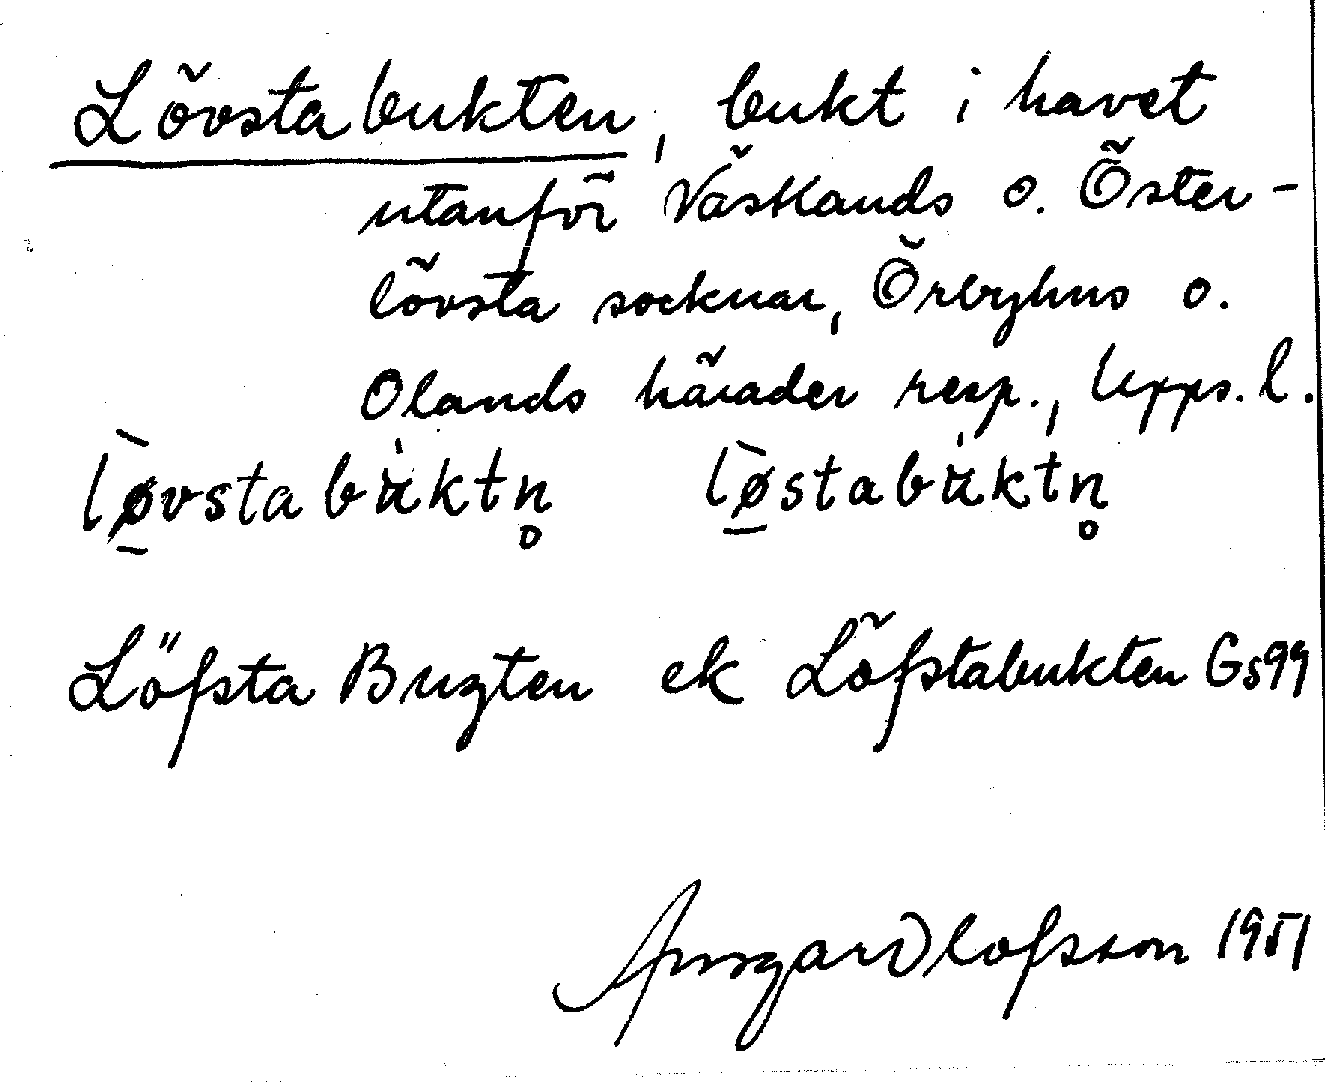 Lövstabukten, bukt i havet
utanför Västlands o. Öster-
lövsta socknar, Örbyhus o.
Olands härader resp., Upps. l.
lø̱̀vstabu̇ktn̥ lø̱̀stabu̇ktn̥
Löfsta Bugten ek Löfstabukten Gs99
Ansgar Olofsson 1951